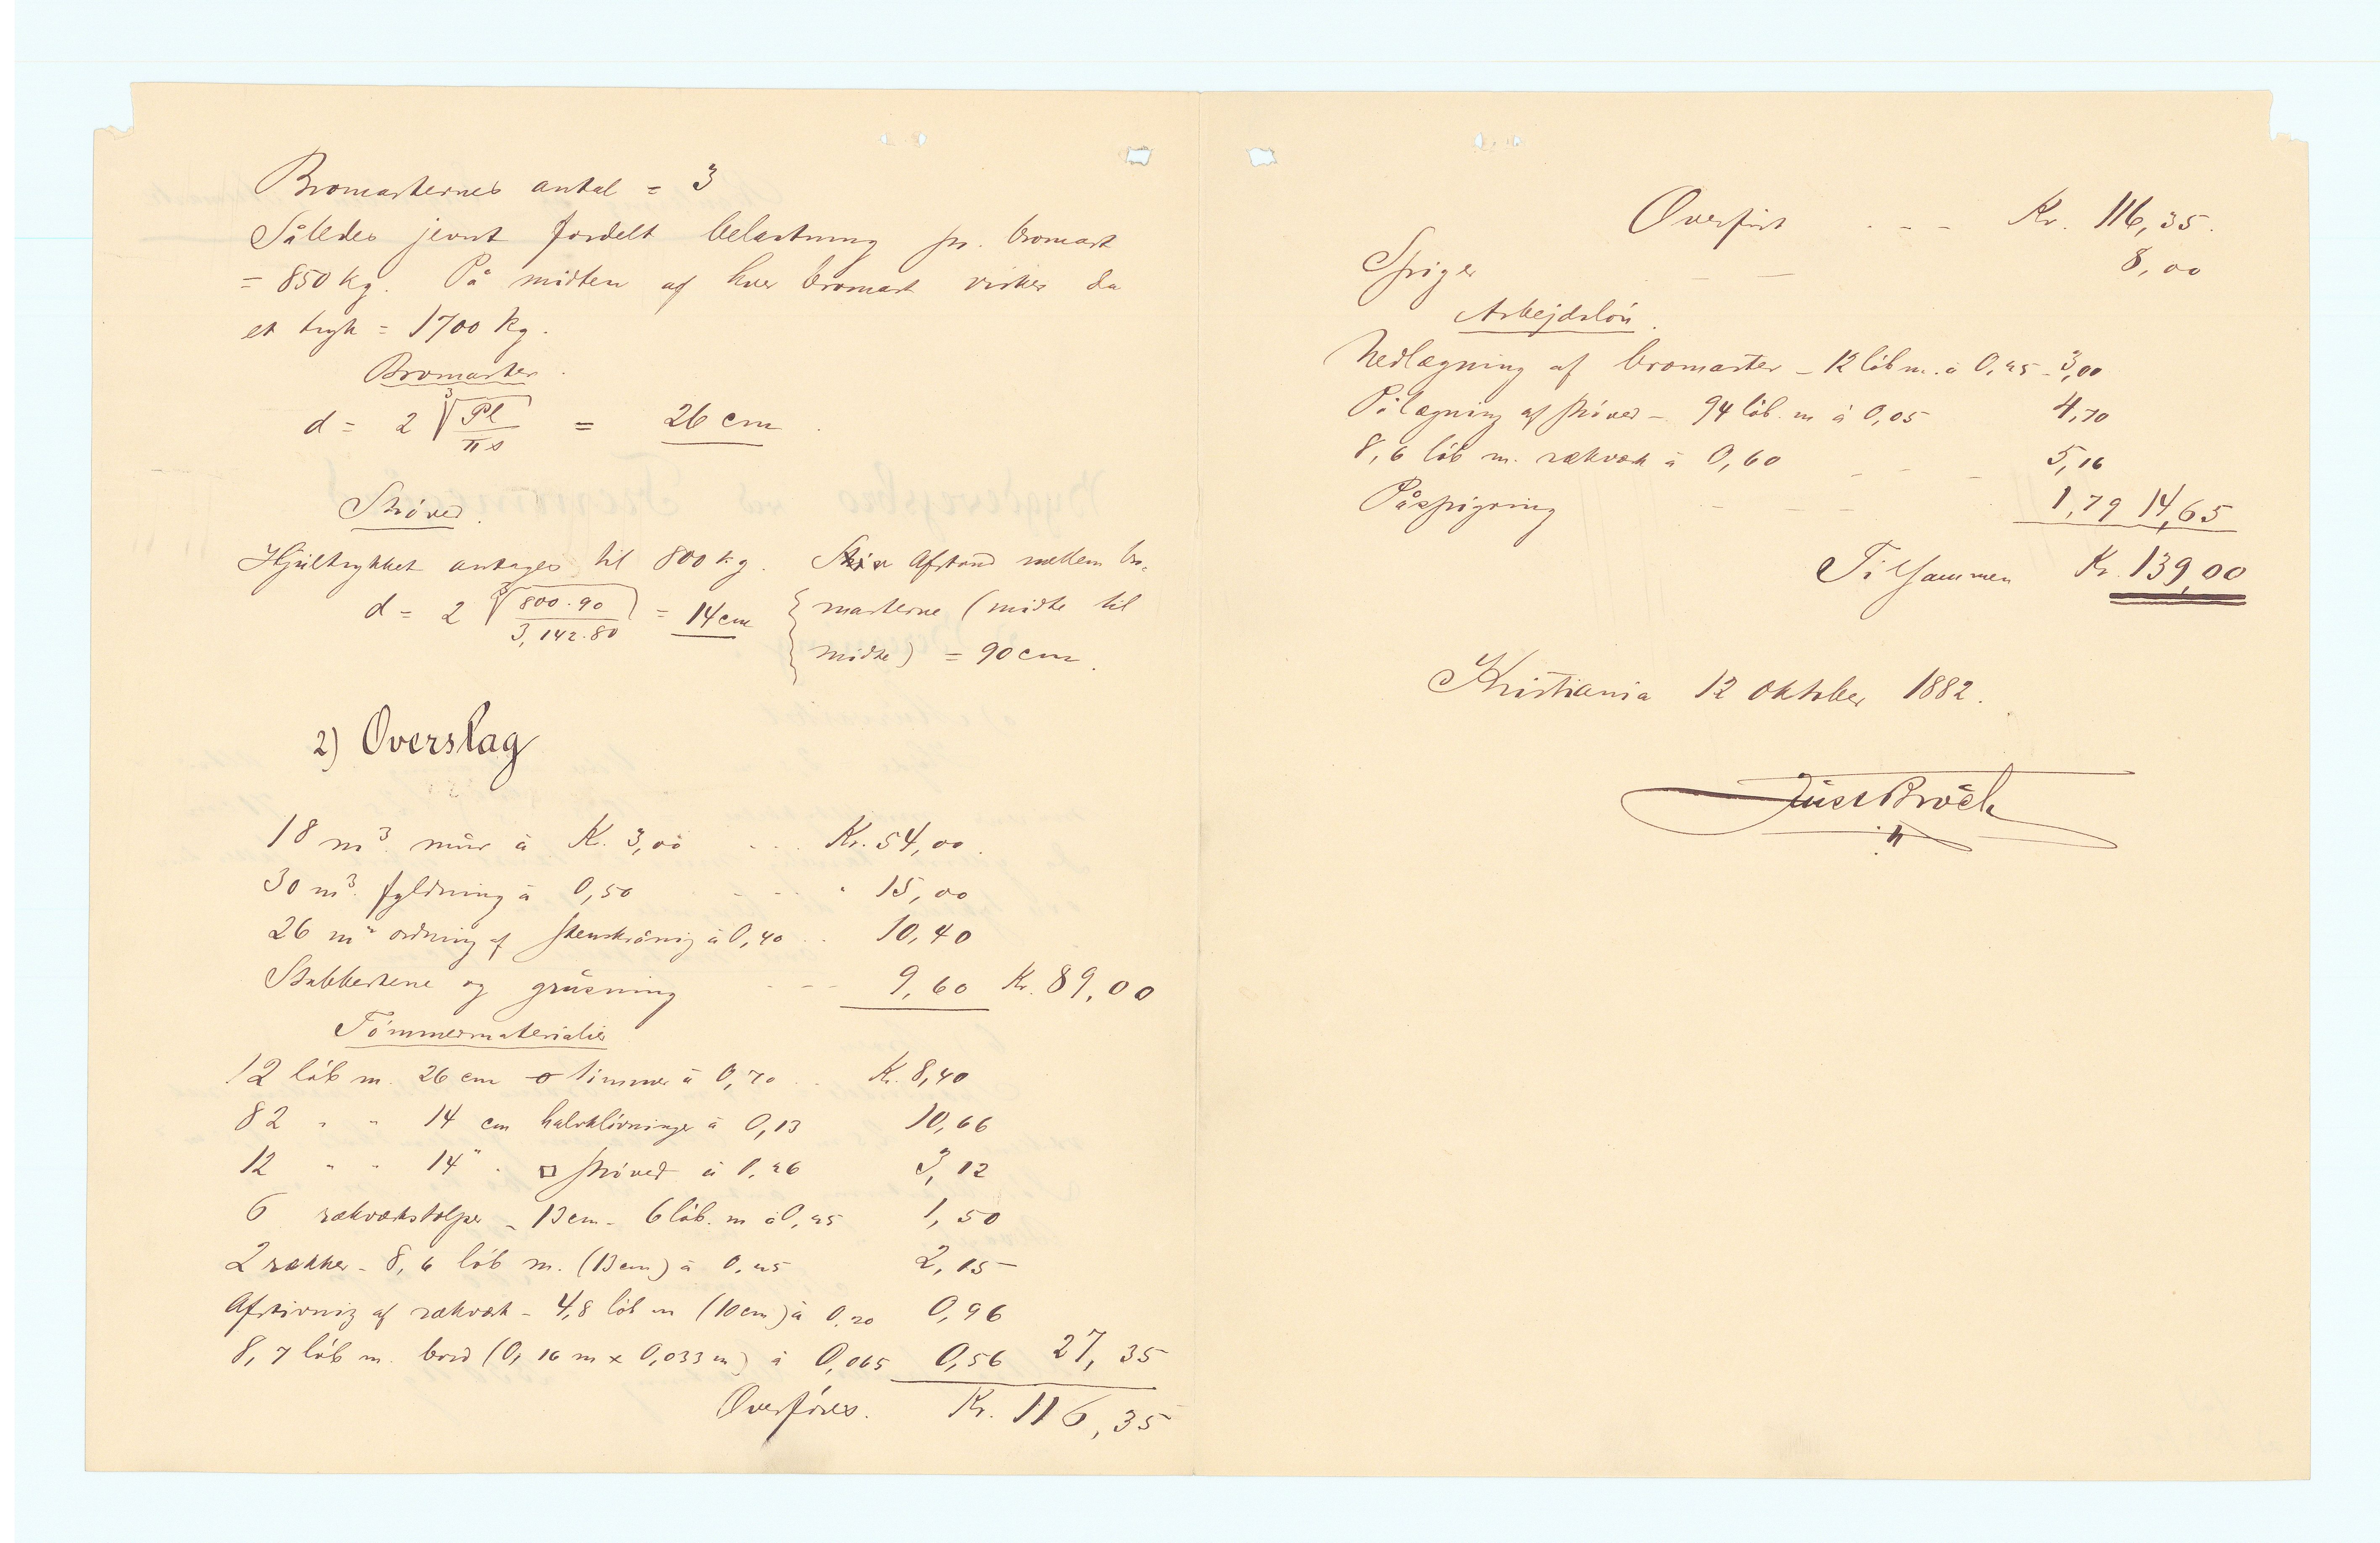 Bromasternes antal = 3
Således jevnt fordelt belastning pr. bromast
= 850 kg. På midten af hver bromast virker da
et tryk = 1700 kg.
Bromaster.
d = 2 ∛(Pl / π s) = 26 cm.
Ströved.
Hjultrykket antages til 800 kg. Afstand mellem bro-
d = 2 ∛(800.90 / 3,142.80) = 14 cm { masterne (midte til
midte) = 90 cm.
2) Overslag
18 m³. mur à K. 3,00 - - - Kr. 54,00.
30 m³. fyldning à 0,50 - - - " 15,00
26 m² ordning af stenskråning à 0,40 - - 10,40
Stabbestene og grusning - - - 9,60 Kr. 89,00
Tömmermaterialier
12 löb m. 26 cm tömmer à 0,70 - - Kr. 8,40
82 " " 14 cm halvklövninger à 0,13 10,66
12 " " 14 " □ ströved à 0,26 3,12
6 rækværkstolper - 13 cm - 6 löb. m à 0,25 1,50
2 rækker - 8,6 löb m. (13 cm) à 0,25 2,15
Afstivning af rækværk - 4,8 löb m (10 cm) à 0,20 0,96
8,7 löb m. bord (0,16 m x 0,033 m) à 0,065 0,56 27,35
Overföres. Kr. 116,35
Overfört - - - Kr. 116,35.
Spiger - - 8,00
Arbejdslön.
Nedlægning af bromaster - 12 löb m. à 0,25 - 3,00
Pålægning af ströved - 94 löb. m à 0,05 4,70
8,6 löb m. rækværk à 0,60 - - - 5,16
Påspigring - - - 1,79 14,65
Tilsammen Kr. 139,00
Kristiania 12 oktober 1882.
Just Broch